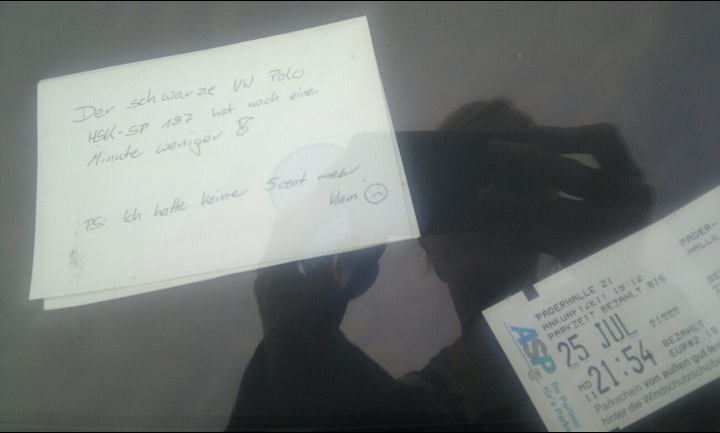 Der schwarze VW Polo
HSK-SP 187 hat noch eine
Minute weniger
PS: Ich hatte keine 5cent mehr
klein ☹
PADERHALLE 21
ANKUNFTZEIT 19:12
PARKZEIT BEZAHLT BIS
25 JUL
MO 21:54
BEZAHLT
EUR#2.
ASP
Ihr Partner
für's
Parkschein von außen gut
hinter die Windschutzscheibe
PADER-